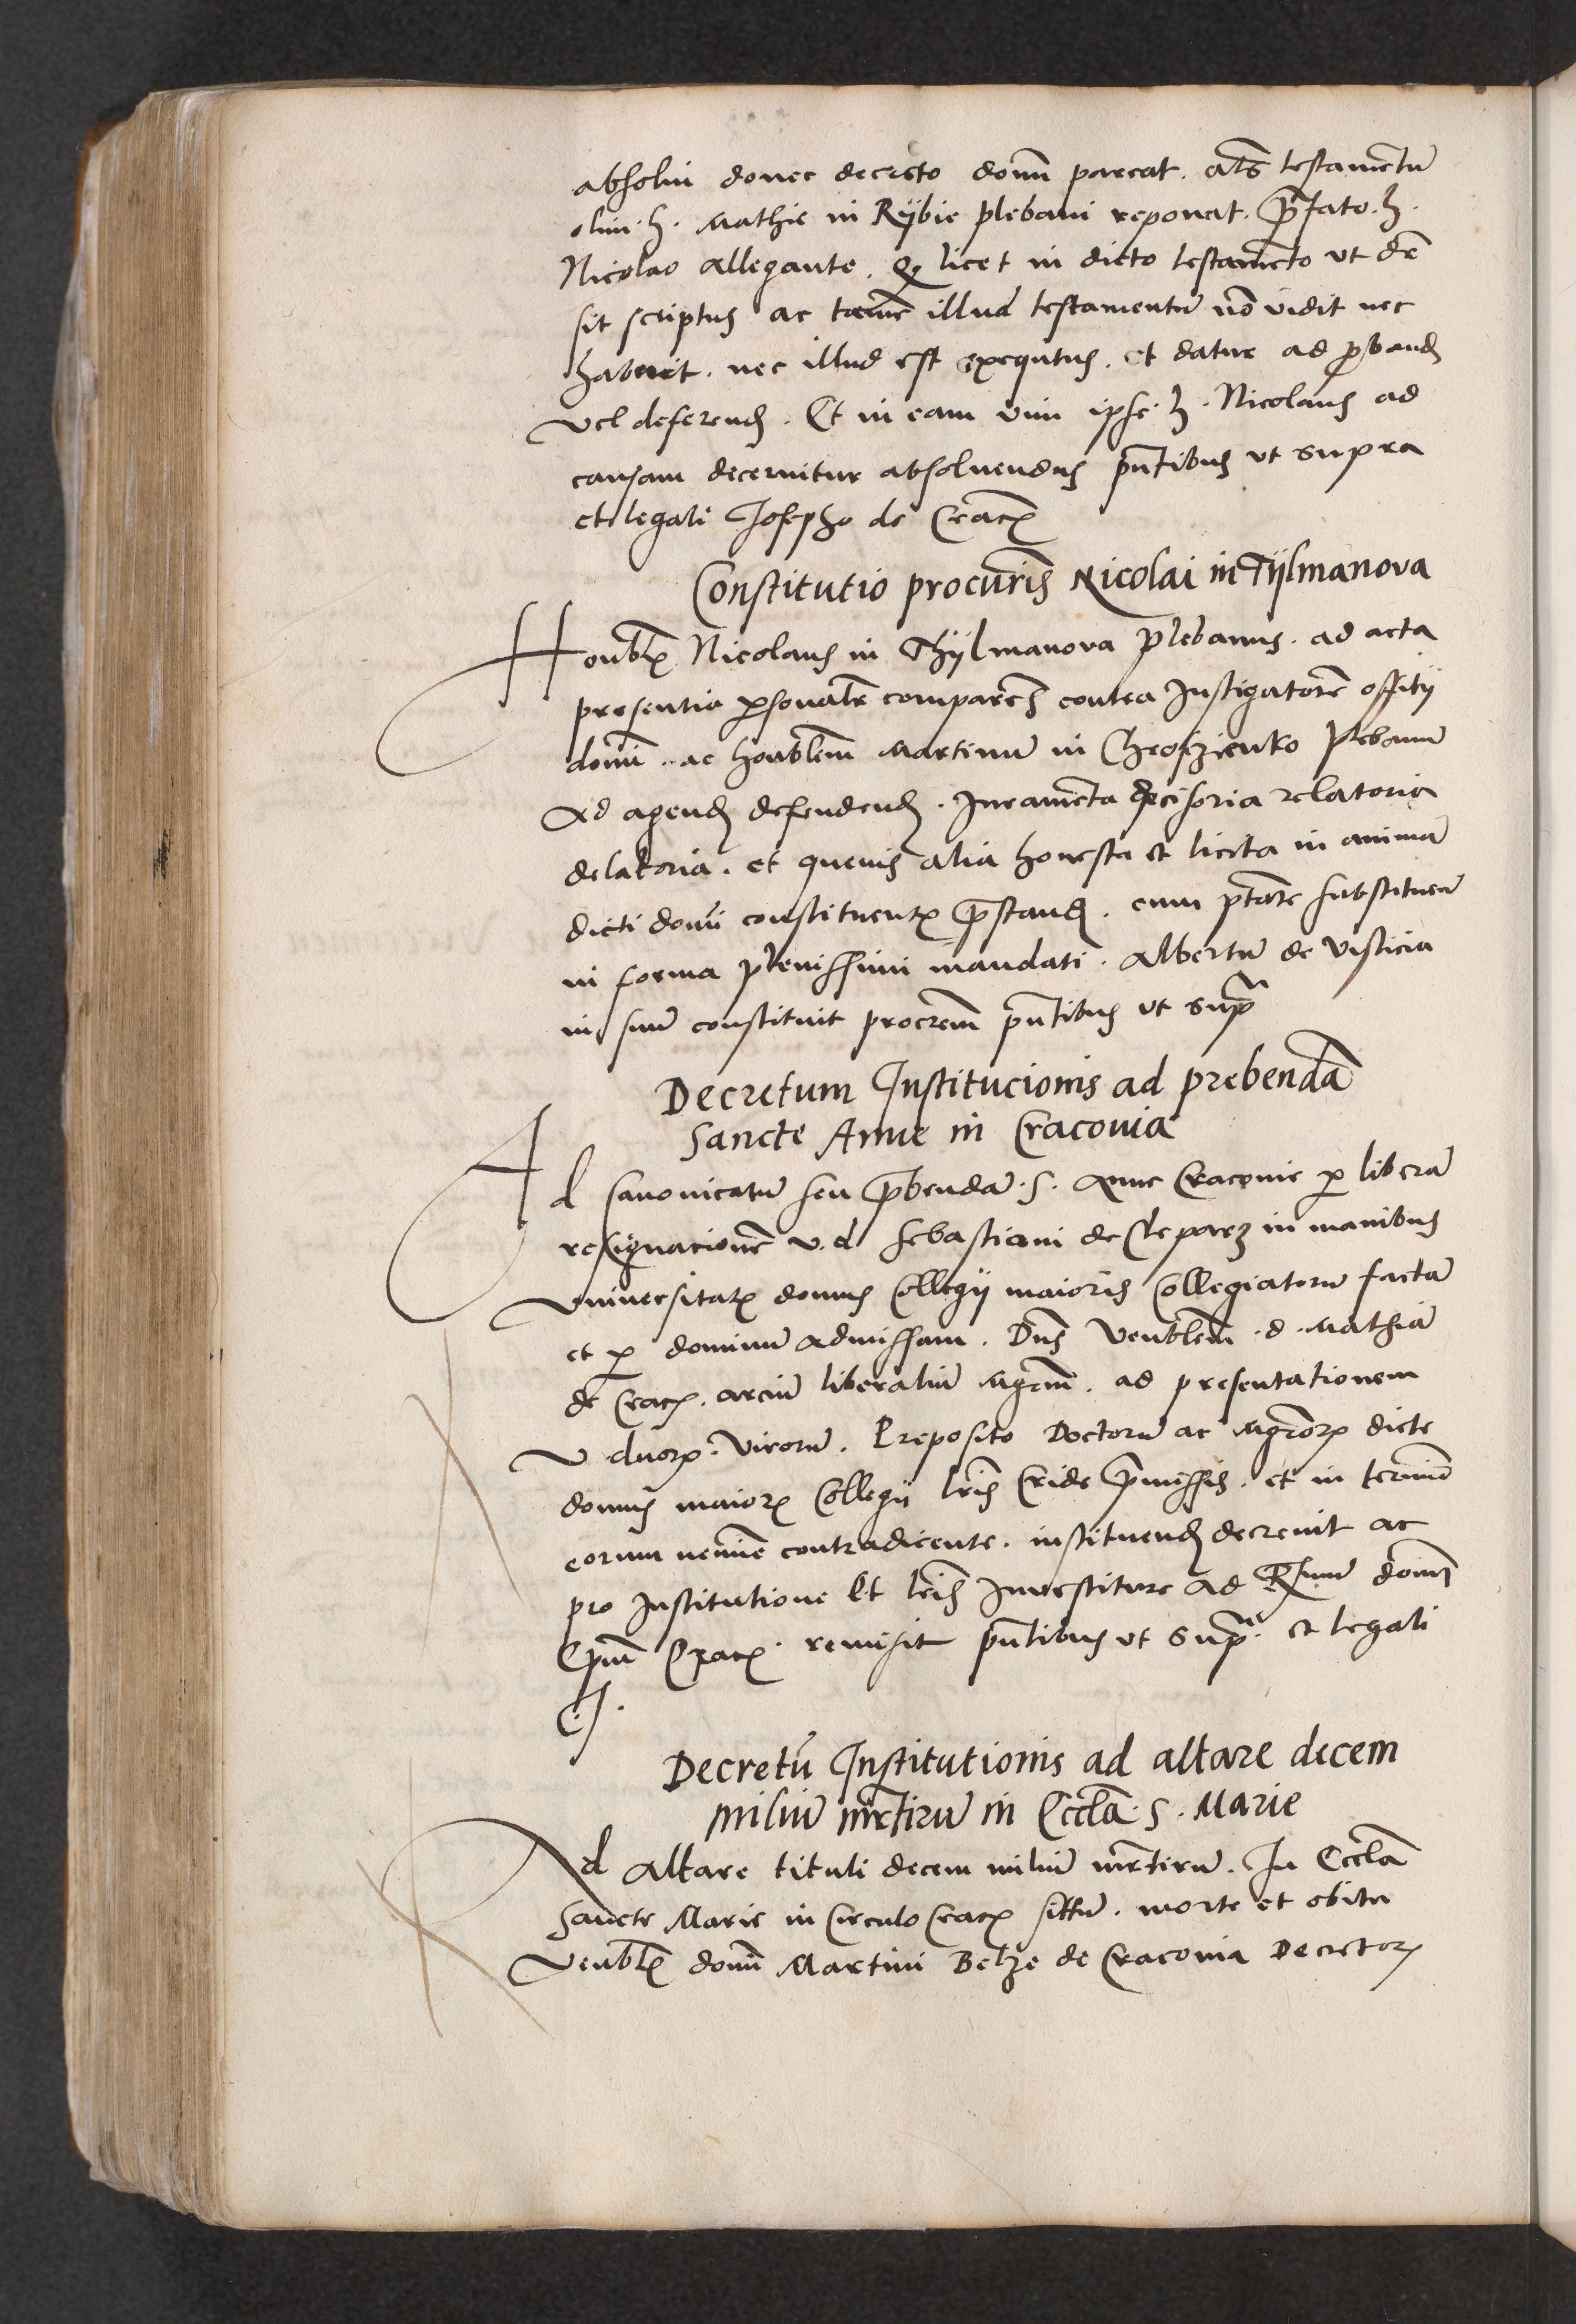 absolvi donec decreto domī pareat. als testamentū
olim. h. Mathie in Rÿbie plebani reponat. p̄fato. h.
Nicolao allegante. q licet in dicto testamēto ut dē
sit scriptus ac tamē illud testamentū nō vidit nec
habuit. nec illud est exequtus. et datur ad proband
vel deferend. Et in eam vim ipse. h. Nicolaus ad
causam decernitur absolvendus pn̄tibus ut supra
et legali Josepho de Crac
Constitutio procuris Nicolai in Tÿlmanova
Honbl Nicolaus in Thÿlmanova plebanus. ad acta
presentia psonalr comparēs contra Instigatorē offitij
domī. ac honblem Martinū in plebanū
Ad agend defendend. Iuramēta decisoria relatoria
delatoria. et quevis alia honesta et licita in animā
dicti domī constituentis p̄stand. cum ptate substituen
in forma plenissimi mandati. Albertū de Visticia
in suū constituit procrem pn̄tibus ut sup
Decretum Institucionis ad prebendā
Sancte Anne in Cracovia
Ad Canonicatū seu p̄bendā. S. Anne Cracovie p liberā
resignacionē v. d Sebastiani de Cleparz in manibus
Universitatis domus Collegij maioris Collegiatorū factā
et p dominū admissam. Dns Venblem. d. Mathiā
de Crac. arciū liberaliū Mgrm. ad presentationem
V dnor. Virorū. Preposito Doctorū ac Mgror dicte
domus maior Collegij lris Cride p̄missis. et in termīo
eorum nemīe contradicente. instituend decrevit ac
pro Institutione Et lris Investiture ad Rsmū domī
Epūm Crac. remisit pn̄tibus ut sup. et legali
C. J.
Decretū Institutionis ad altare decem
miliū mrtirū in Eccla. S. Marie
Ad Altare tituli decem miliū mrtirū. In Eccla
Sancte Marie in Circulo Crac sittū. morte et obitu
Venbl domī Martini Belze de Cracovia Decretor